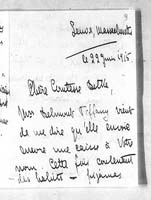 Lenox, Massachusetts
le 22 Juin 1915
Chère Comtesse
Miss Belmont Tiffany vient
de me dire qu'elle envoie
encore une caisse à votre
nom. Cette fois seulement
des habits — pyjamas